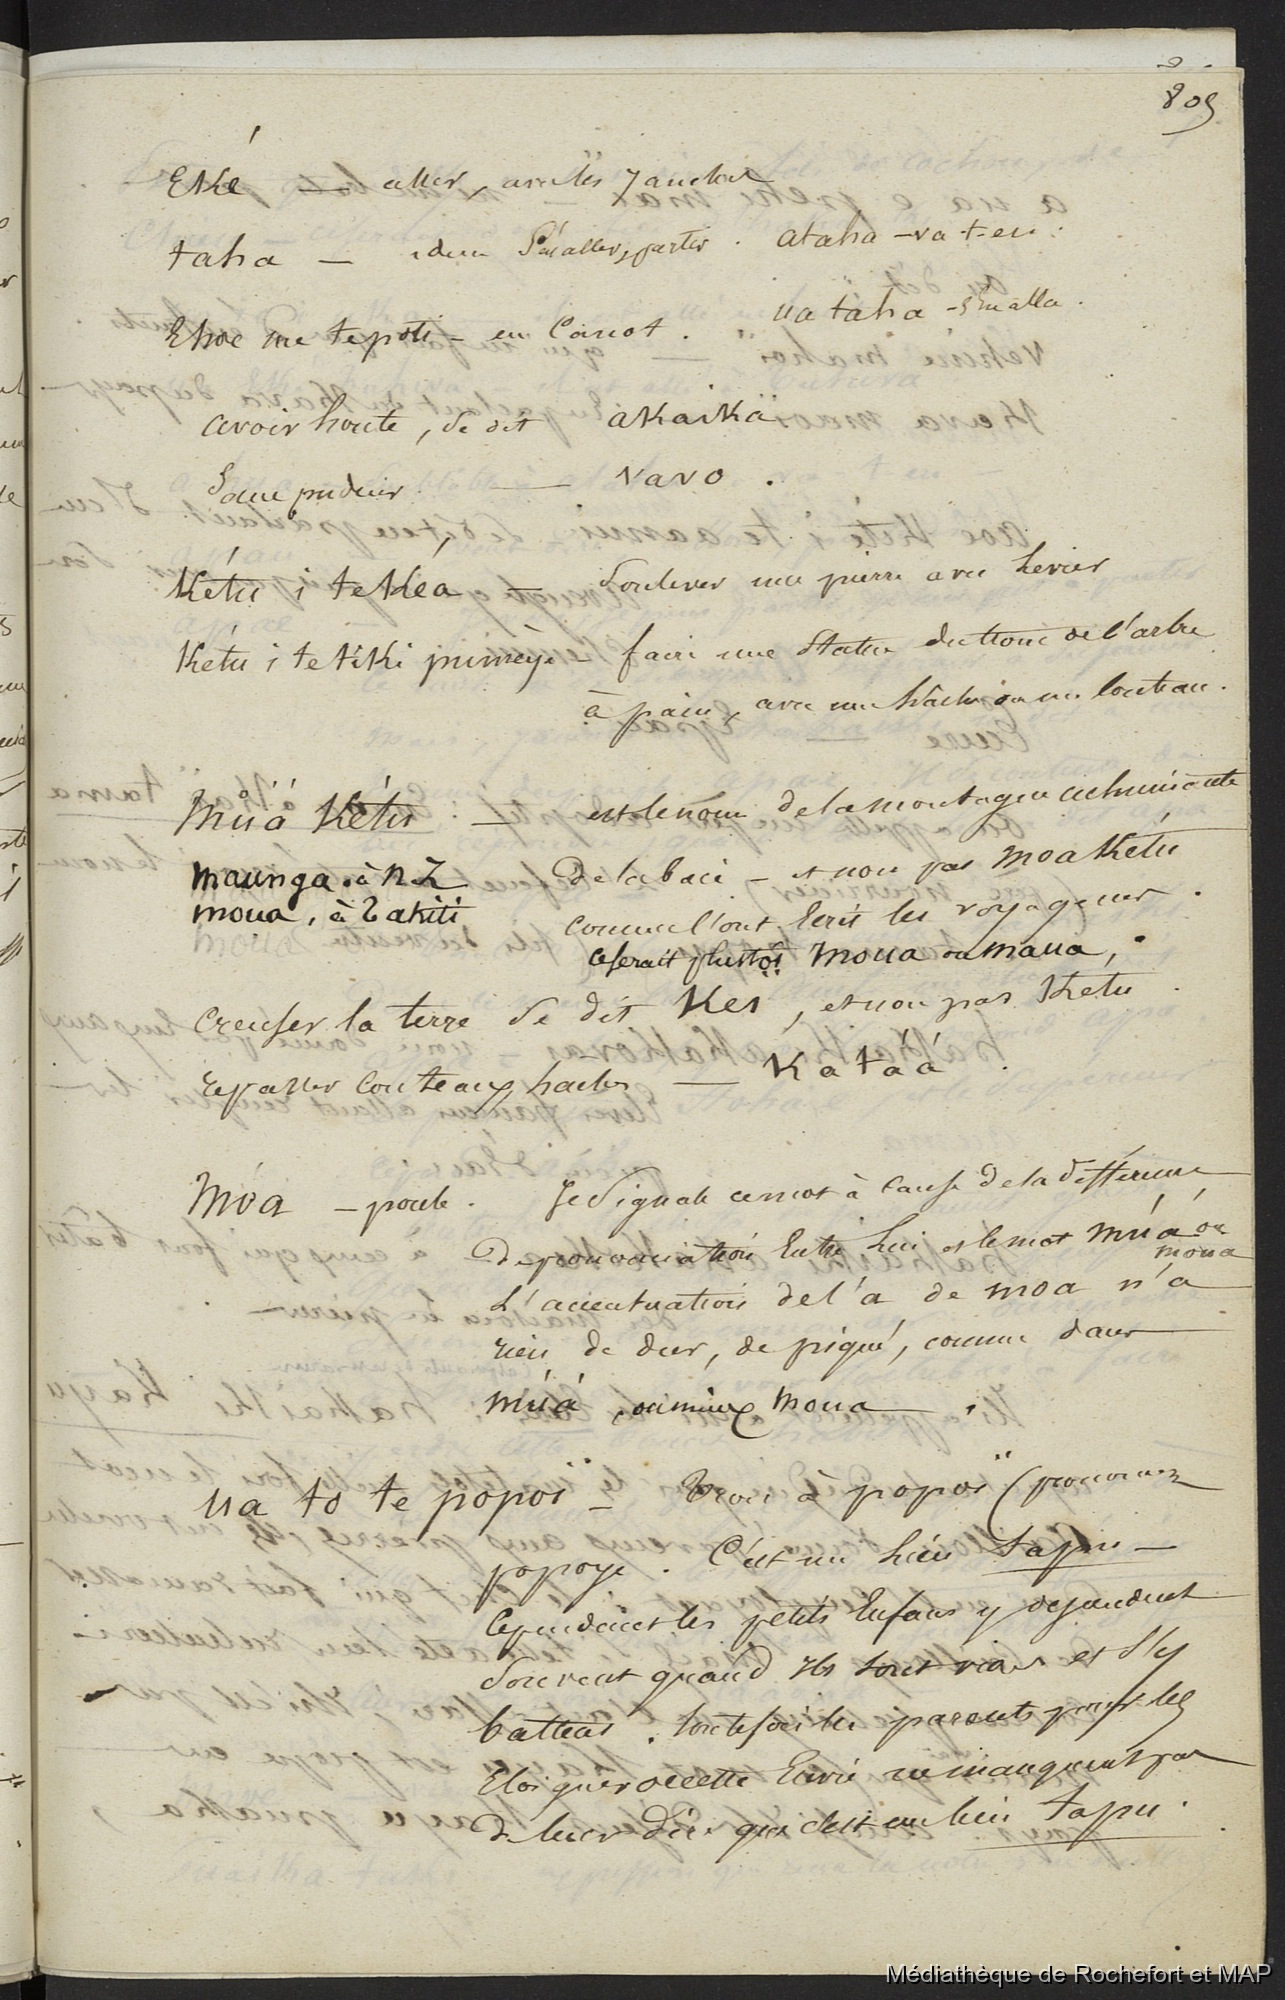 809
Eké — aller, avec les jambes
taha — idem S'en aller, partir. ataha - va-t-en.
Ehoe me te poti - en Canot. ua taha - s'en alla.
avoir honte, se dit akaika
Sans pudeur — vavo.
Kétu i te Kea — soulever une pierre avec levier
Kétu i te tiki — faire une Statue du tronc de l'arbre
à pain, avec une hâche ou un couteau.
Múá Kétu — est le nom de la montagne culminante
maunga. à NZ De la baie — et non pas moa Kétu
moua, à Tahiti comme l'ont écrit les voyageurs.
ce serait plustôt moua ou maua,
Creuser la terre se dit Keï, et non pas Ketu.
repasser couteaux, haches — Kátáá.
Móa — poule. Je signale ce mot à cause de la différence
De prononciation Entre lui et le mot múa ou
moua
L'accentuation de l'a de moa n'a
rien de dur, de piqué, comme dans
múá, ou mieux moua.
ua to te popoï — Trou à popoï (prononcez
popoye. C'est un lieu tapu —
Cependant les petits Enfans y descendent
souvent quand ils sont vides et s'y
battent. toutefois les parents pour les
Eloigner de cette Envie ne manquent pas
De leur dire que c'est un lieu tapu.
Médiathèque de Rochefort et MAP